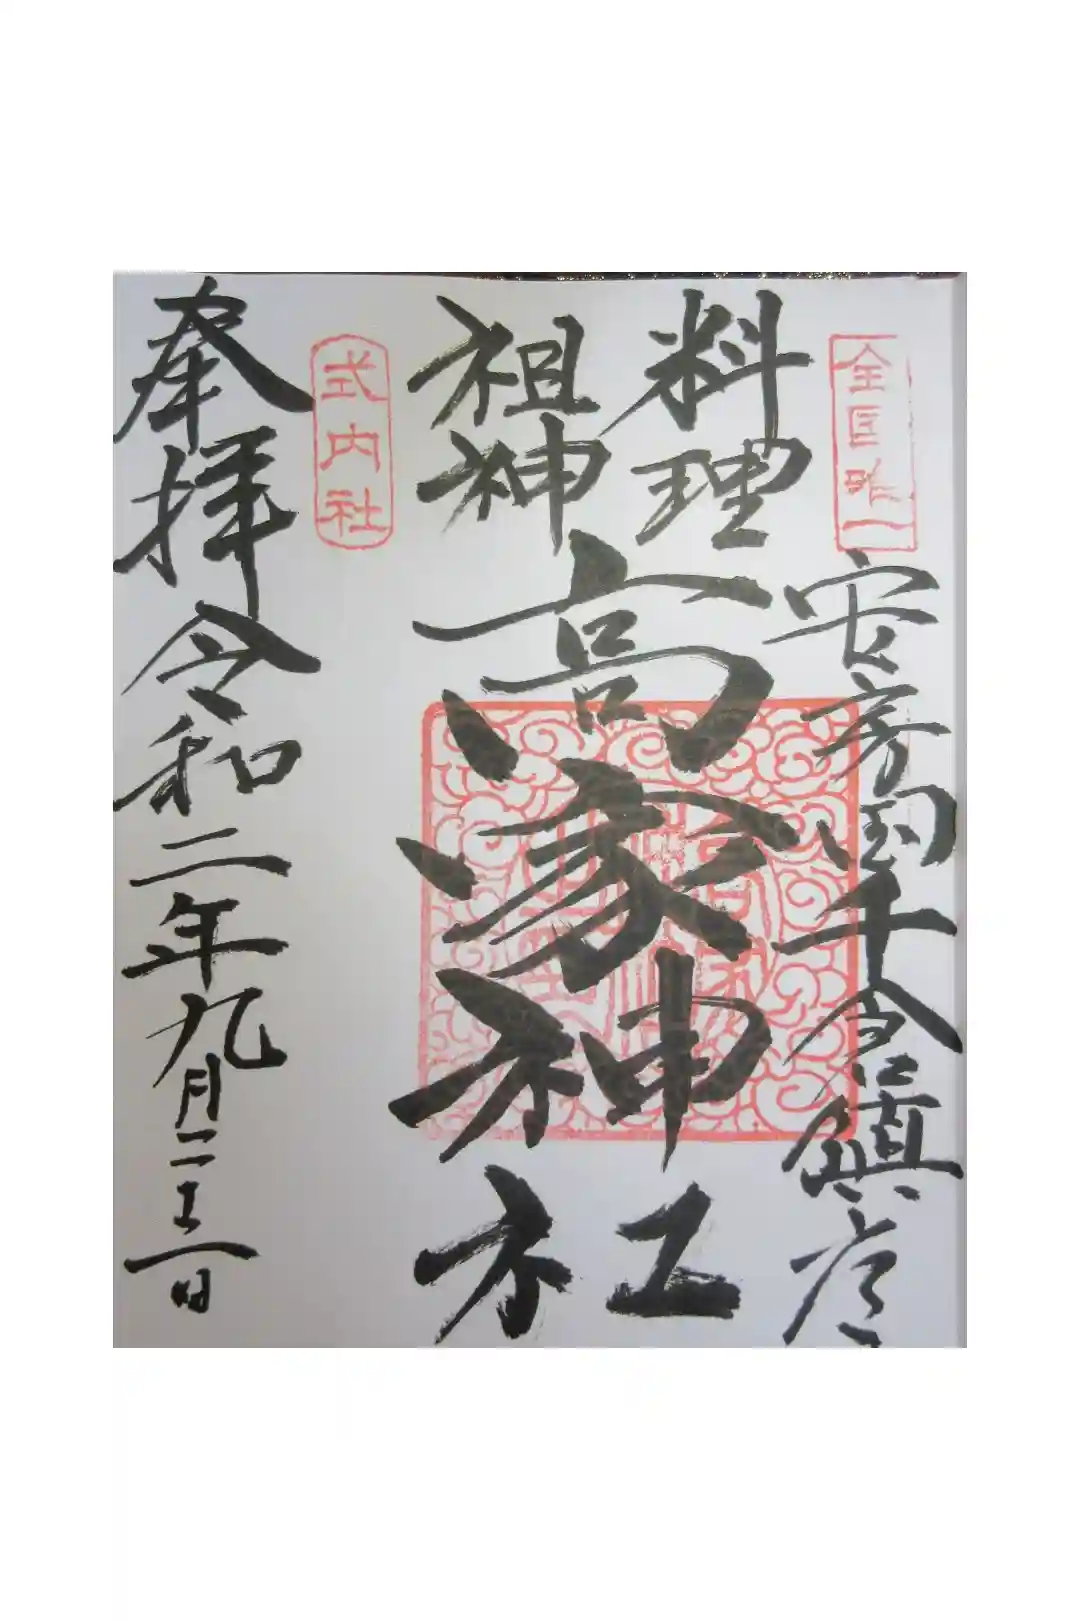 全国唯一
安房國千倉鎮座
料理
祖神
高家神社
式内社
奉拝 令和二年九月二十二日